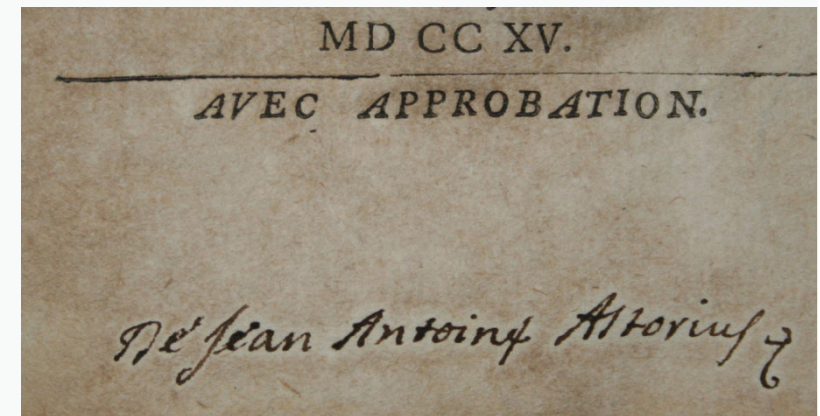 MD CC XV.
AVEC APPROBATION.
De Jean Antoine Astorius